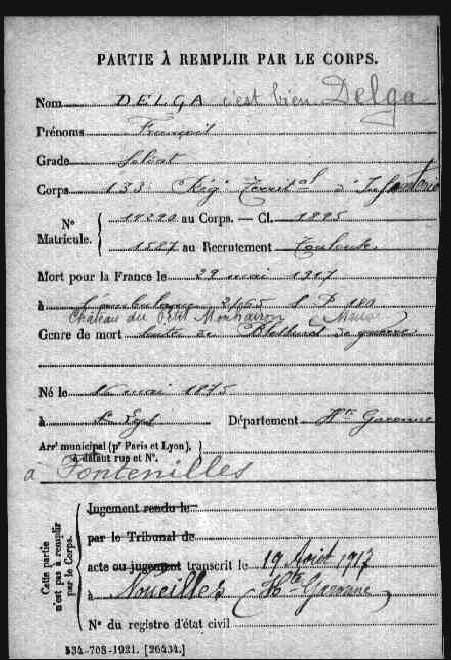 PARTIE À REMPLIR PAR LE CORPS.
Nom DELGA c'est bien Delga
Prénoms François
Grade Soldat
Corps 133 Rég Territal d'Infanterie
N° Matricule. { au Corps. — Cl. 1895
1527 au Recrutement Toulouse
Mort pour la France le 29 mai 1917
à ambulance S P
Château du Petit Monhairon Meuse
Genre de mort Suites de Blessures de guerre
Né le 16 mai 1875
à St Lys Département Hte Garonne
Arrt municipal (pr Paris et Lyon),
à défaut rue et N°.
à Fontenilles
Cette partie n'est pas à remplir par le Corps.
Jugement rendu le
par le Tribunal de
acte ou jugement transcrit le 19 Août 1917
à Noueilles (Hte Garonne)
N° du registre d'état civil
534-708-1921. [26434.]